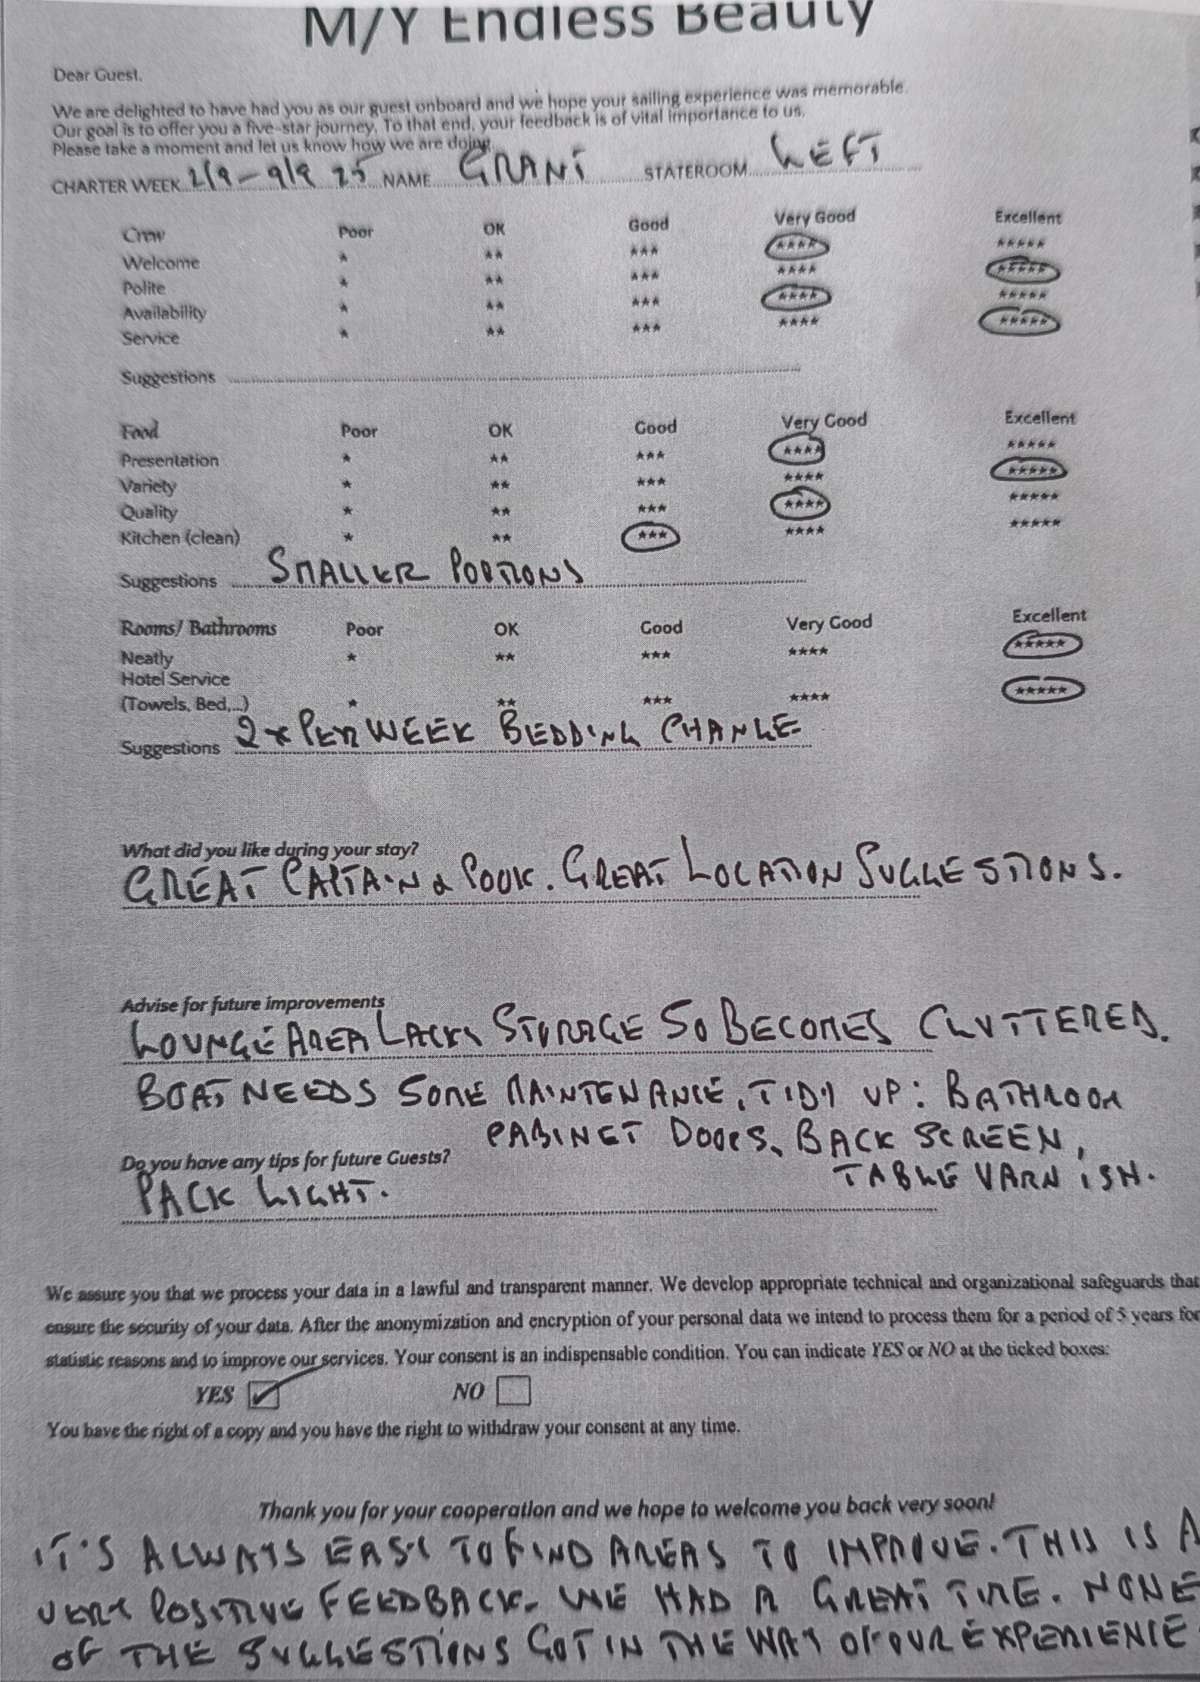 M/Y Endless Beauty
Dear Guest,
We are delighted to have had you as our guest onboard and we hope your sailing experience was memorable.
Our goal is to offer you a five-star journey. To that end, your feedback is of vital importance to us.
Please take a moment and let us know how we are doing.
CHARTER WEEK 2/9 - 9/9 25 NAME GRANT STATEROOM LEFT
Crew Poor OK Good Very Good Excellent
Welcome * ** *** **** *****
Polite * ** *** **** *****
Availability * ** *** **** *****
Service * ** *** **** *****
Suggestions
Food Poor OK Good Very Good Excellent
Presentation * ** *** **** *****
Variety * ** *** **** *****
Quality * ** *** **** *****
Kitchen (clean) * ** *** **** *****
Suggestions SMALLER PORTIONS
Rooms/ Bathrooms Poor OK Good Very Good Excellent
Neatly * ** *** **** *****
Hotel Service
(Towels, Bed,...) * ** *** **** *****
Suggestions 2x PER WEEK BEDDING CHANGE
What did you like during your stay?
GREAT CAPTAIN & COOK. GREAT LOCATION SUGGESTIONS.
Advise for future improvements
LOUNGE AREA LACKS STORAGE SO BECOMES CLUTTERED.
BOAT NEEDS SOME MAINTENANCE, TIDY UP: BATHROOM
CABINET DOORS, BACK SCREEN,
TABLE VARNISH.
Do you have any tips for future Guests?
PACK LIGHT.
We assure you that we process your data in a lawful and transparent manner. We develop appropriate technical and organizational safeguards that
ensure the security of your data. After the anonymization and encryption of your personal data we intend to process them for a period of 5 years for
statistic reasons and to improve our services. Your consent is an indispensable condition. You can indicate YES or NO at the ticked boxes:
YES NO
You have the right of a copy and you have the right to withdraw your consent at any time.
Thank you for your cooperation and we hope to welcome you back very soon!
IT'S ALWAYS EASY TO FIND AREAS TO IMPROVE. THIS IS A
VERY POSITIVE FEEDBACK. WE HAD A GREAT TIME. NONE
OF THE SUGGESTIONS GOT IN THE WAY OF OUR EXPERIENCE